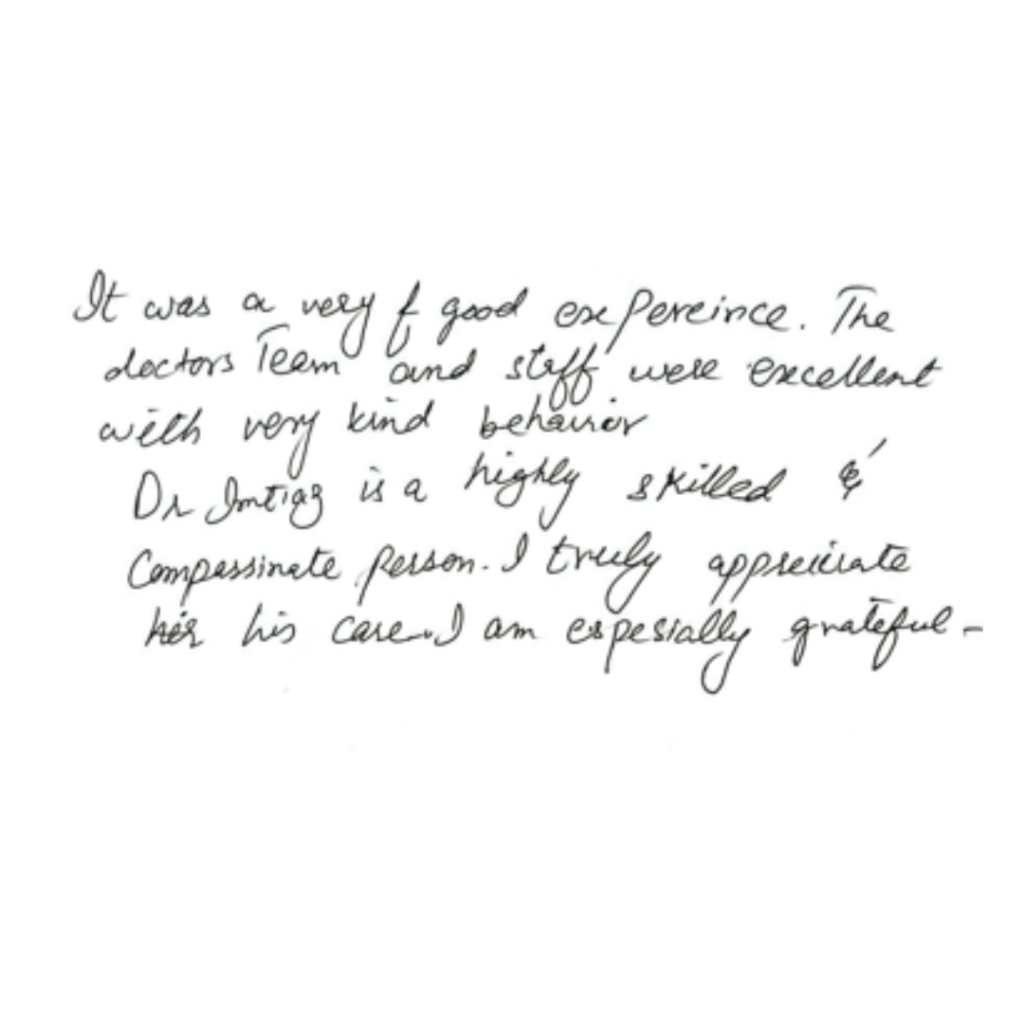 It was a very f good expereince. The
doctors Team and staff were excellent
with very kind behavior
Dr Imtiaz is a highly skilled &
Compassinate person. I truly appreiciate
his care. I am espesially grateful -